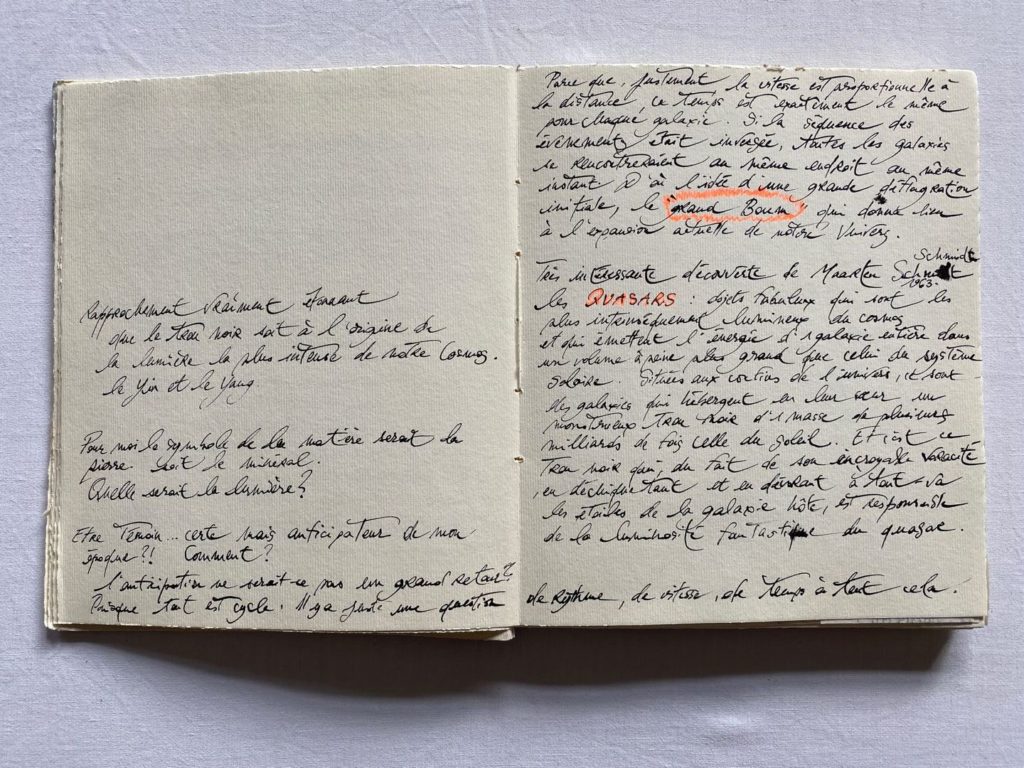 Rapprochement vraiment étonnant
que le trou noir soit à l'origine de
la lumière la plus intense de notre Cosmos.
le Yin et le Yang.
Pour moi le symbole de la matière serait la
pierre. Soit le minéral.
Quelle serait la lumière?
Etre Témoin... certe mais anticipateur de mon
époque?! Comment?
l'anticipation ne serait-ce pas un grand retour?
Puisque tout est cycle. Il y a juste une question
Parce que, justement la vitesse est proportionnelle à
la distance, ce temps est exactement le même
pour chaque galaxie. Si la séquence des
évènements était inversée, toutes les galaxies
se rencontreraient au même endroit au même
instant D'où l'idée d'une grande déflagration
initiale, le "grand Boum" qui donna lieu
à l'expansion actuelle de notre Univers.
Très intéressante découverte de Maarten Schmidt
1963.
les QUASARS : objets fabuleux qui sont les
plus intrinsèquement lumineux du cosmos
et qui émettent l'énergie d'1 galaxie entière dans
un volume à peine plus grand que celui du système
solaire. Situées aux confins de l'univers, ce sont
des galaxies qui hébergent en leur sein un
monstrueux trou noir d'1 masse de plusieurs
milliards de fois celle du soleil. Et c'est ce
trou noir qui, du fait de son incroyable voracité
en déchiquetant et en dévorant à tout-va
les étoiles de la galaxie hôte, est responsable
de la luminosité fantastique du quasar.
de rythme, de vitesse, de temps à tout cela.